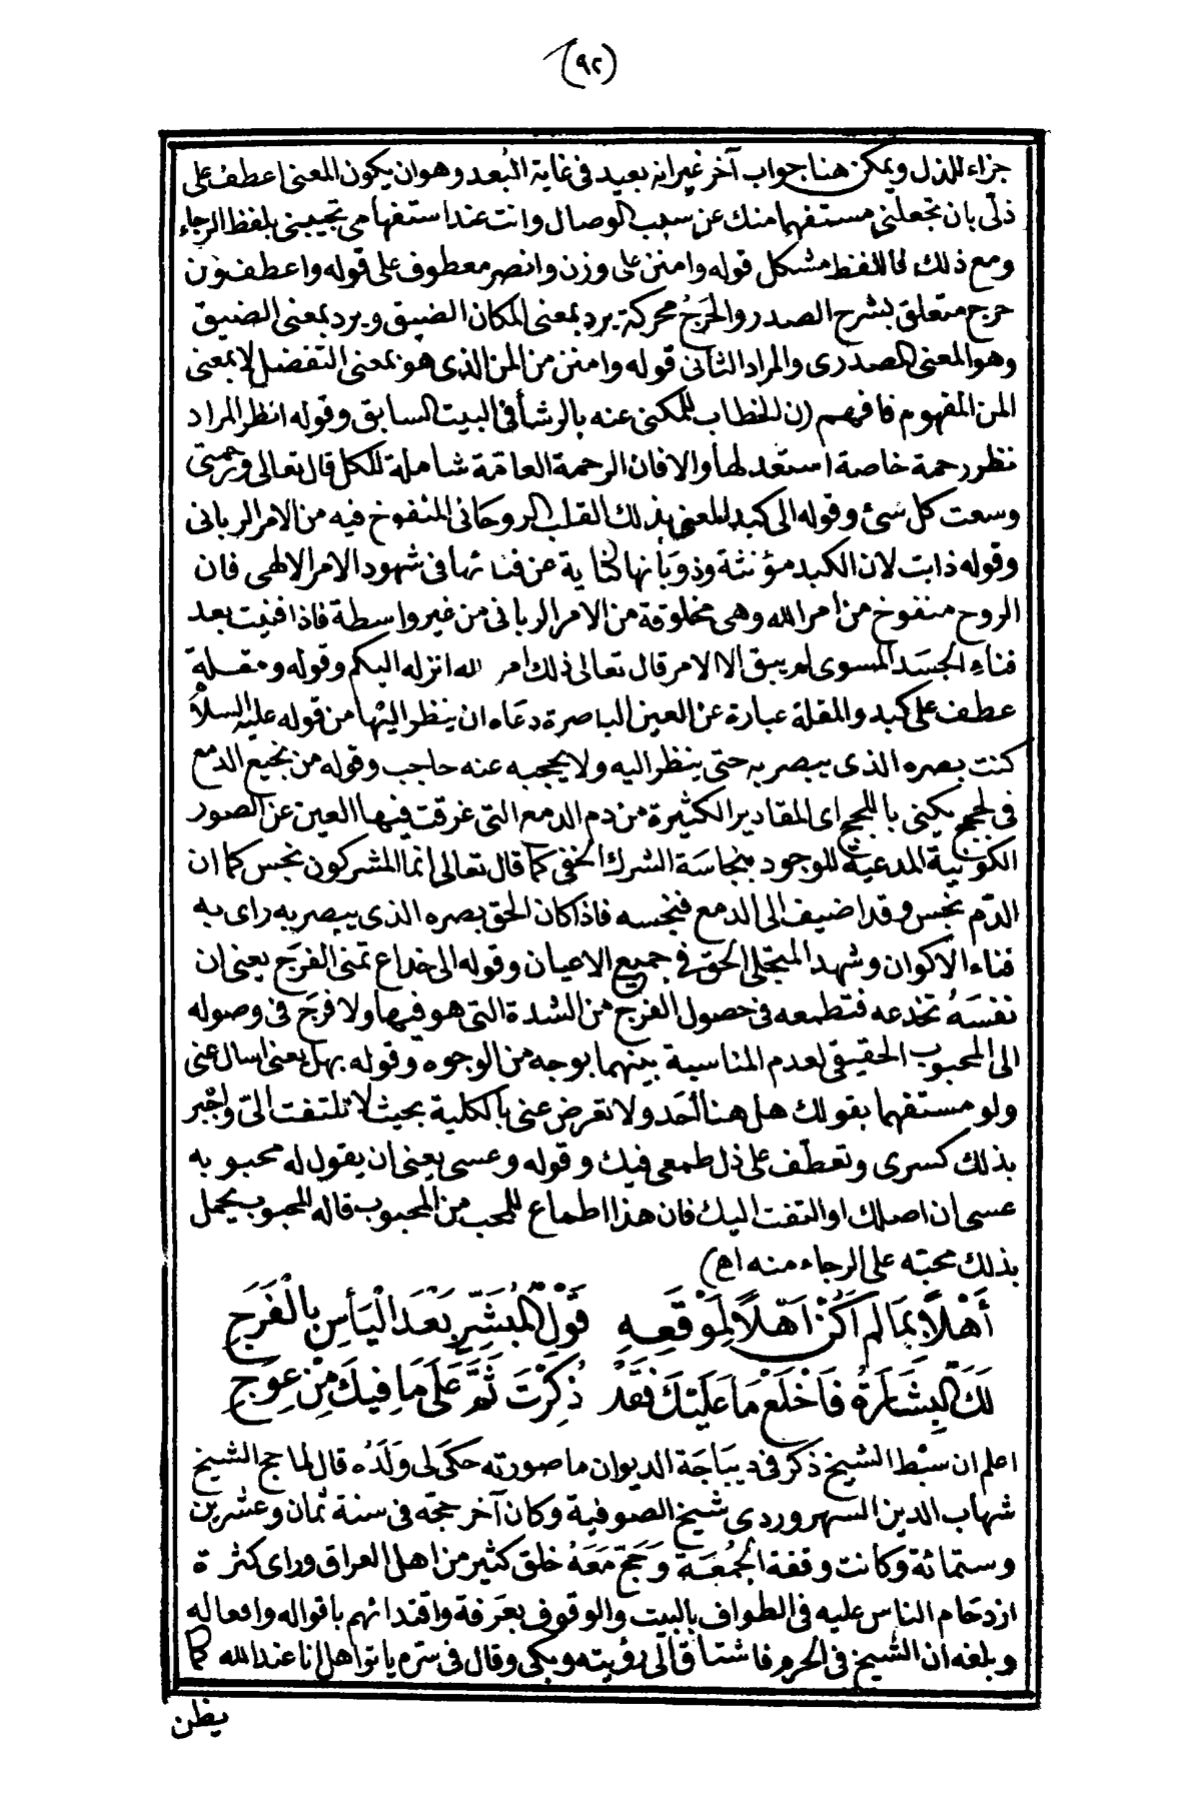 (٩٢)
جزاء للذل ويمكن هنا جواب آخر غير انه بعيد في غاية البُعد وهو ان يكون المعنى اعطف على
ذلّي بان تجعلني مستفهما منك عن سبب الوصال وانت عند استفهامى تجيبني بلفظ الرجاء
ومع ذلك فاللفظ مشكل قوله وامنن على وزن وانصر معطوف على قوله واعطف ون
حرج متعلق بشرح الصدر والحَرَجُ محركة يرد بمعنى المكان الضيق ويرد بمعنى الضيق
وهو المعنى المصدرى والمراد الثانى قوله وامنن من المن الذى هو بمعنى التفضل لا بمعنى
المن المفهوم فافهم (ن الخطاب للمكنى عنه بالرشأ في البيت السابق وقوله انظر المراد
نظر رحمة خاصة استعد لها والا فان الرحمة العامّة شاملة للكل قال تعالى ورحمتى
وسعت كل شئ وقوله الى كبد المعنى بذلك القلب الروحانى المنفوخ فيه من الامر الربانى
وقوله ذابت لان الكبد مؤنثة وذوبانها كناية عن فنائها فى شهود الامر الالهى فان
الروح منفوخ من امر الله وهى مخلوقة من الامر الربانى من غير واسطة فاذا فنيت بعد
فناء الجسَد المسوى لم يبق الا الامر قال تعالى ذلك امر الله انزله اليكم وقوله ومقلة
عطف على كبد والمقلة عبارة عن العين الباصرة دعاه ان ينظر اليها من قوله عليه السلام
كنت بصره الذى يبصر به حتى ينظر اليه ولا يحجبه عنه حاجب وقوله من نجيع الدمع
فى لجج يكنى باللجج اى المقادير الكثيرة من دم الدمع التى غرقت فيها العين عن الصور
الكونية المدعية للوجود بنجاسَة الشرك الخفى كما قال تعالى انما المشركون نجس كما ان
الدّم نجس وقد اضيف الى الدمع فنجسه فاذا كان الحق بصره الذى يبصر به راى به
فناء الاكوان وشهد المتجلى الحق فى جميع الاعيان وقوله الى خداع تمنى الفرَج يعنى ان
نفسَهُ تخدعه فتطمعه فى حصول الفرج من الشدة التى هو فيها ولا فرَج فى وصوله
الى المحبوب الحقيقى لعدم المناسبة بينهما بوجه من الوجوه وقوله بهل يعنى اسال عنى
ولو مستفهما بقولك هل هنا أحَد ولا تعرض عنى بالكلية بحيث لا تلتفت الىّ واجْبر
بذلك كسرى وتعطّف على ذل طمعى فيك وقوله وعسى يعنى ان يقول له محبوبه
عسى ان اصلك او التفت اليك فان هذا اطماع للمحب من المحبوب قاله المحبوب ليحمل
بذلك محبته على الرجاء منه اهـ)
أَهْلًا بِمَا لَم أَكُنْ أَهْلًا لِمَوْقِعِهِ قَوْلُ المُبَشِّرِ بَعْدَ الْيَأْسِ بِالْفَرَجِ
لَكَ الْبِشَارَةُ فَاخْلَعْ مَا عَلَيْكَ فَقَدْ ذُكِرْتَ ثَمَّ عَلَى مَا فِيكَ مِنْ عِوَجِ
اعلم ان سبْط الشيخ ذكر فى ديبَاجَة الديوان ما صورته حَكَى لى وَلَدُه قال لما حج الشيخ
شهاب الدين السهروردى شيخ الصوفية وكان آخر حجّه فى سنة ثمان وعشرين
وستمائة وكانت وقفة الجُمُعَة وَحَجّ مَعَهُ خلق كثير من اهل العراق وراى كثرة
ازدحام الناس عليه فى الطواف بالبيت والوقوف بعَرفة واقتدائهم باقواله وافعاله
وبلغه أن الشيخ فى الحرم فاشتاق الى رؤيته وبكى وقال فى سّره يا ترا هل انا عند الله كما
يظن